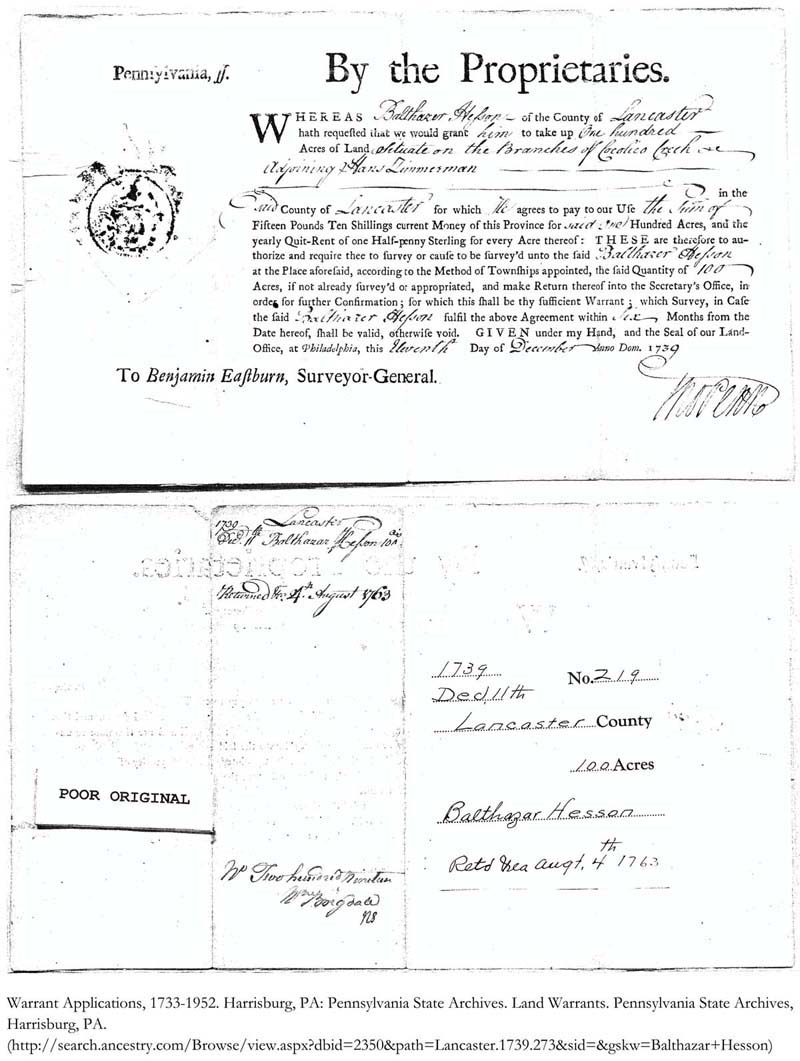 Pennsylvania, ſſ.
By the Proprietaries.
WHEREAS Balthazer Hesson of the County of Lancaster
hath requeſted that we would grant him to take up One hundred
Acres of Land situate on the Branches of Cocolico Creek
adjoining Hans Zimmerman
in the
Said County of Lancaster for which He agrees to pay to our Uſe the Sum of
Fifteen Pounds Ten Shillings current Money of this Province for said One Hundred Acres, and the
yearly Quit-Rent of one Half-penny Sterling for every Acre thereof: THESE are therefore to au-
thorize and require thee to ſurvey or cauſe to be ſurvey'd unto the ſaid Balthazer Hesson
at the Place aforeſaid, according to the Method of Townſhips appointed, the ſaid Quantity of 100
Acres, if not already ſurvey'd or appropriated, and make Return thereof into the Secretary's Office, in
order for further Confirmation; for which this ſhall be thy ſufficient Warrant; which Survey, in Caſe
the ſaid Balthazer Hesson fulfil the above Agreement within Six Months from the
Date hereof, ſhall be valid, otherwiſe void. GIVEN under my Hand, and the Seal of our Land-
Office, at Philadelphia, this Eleventh Day of December Anno Dom. 1739
To Benjamin Eaſtburn, Surveyor-General.
Tho Penn
Lancaster
1739
Dec. 11th Balthazar Hesson 100 as
Returned 4th August 1763
1739 No. 219
Dec. 11th
Lancaster County
100 Acres
POOR ORIGINAL
Balthazar Hesson
Retd Augt. 4th 1763
Two hundred Nineteen
Warrant Applications, 1733-1952. Harrisburg, PA: Pennsylvania State Archives. Land Warrants. Pennsylvania State Archives,
Harrisburg, PA.
(http://search.ancestry.com/Browse/view.aspx?dbid=2350&path=Lancaster.1739.273&sid=&gskw=Balthazar+Hesson)